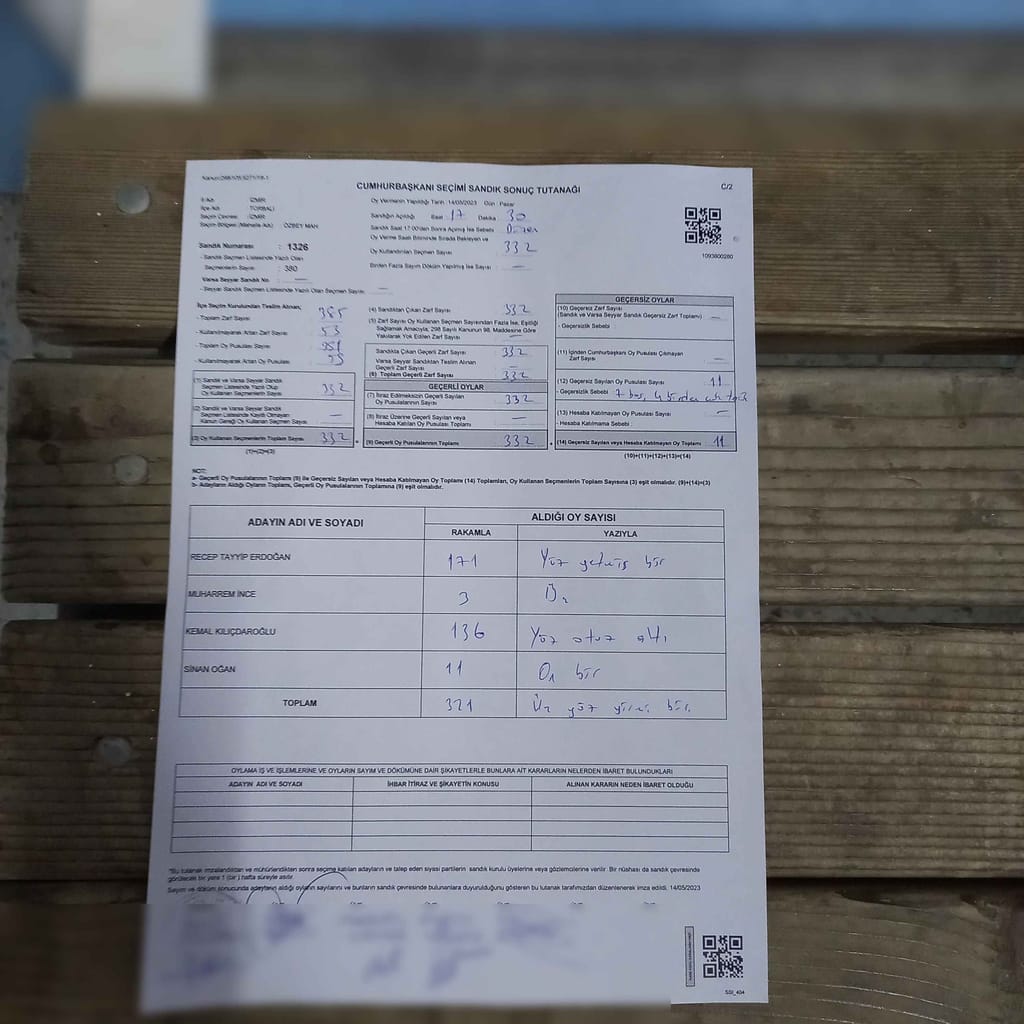 CUMHURBAŞKANI SEÇİMİ SANDIK SONUÇ TUTANAĞI
C/2
İl Adı : İZMİR
İlçe Adı : TORBALI
Seçim Çevresi : İZMİR
Seçim Bölgesi (Mahalle Adı) : ÖZBEY MAH
Oy Vermenin Yapıldığı Tarih : 14/05/2023 Gün : Pazar
Sandığın Açıldığı Saat 17 Dakika 30
Sandık Saat 17:00'den Sonra Açılmış İse Sebebi
Oy Verme Saati Bitiminde Sırada Bekleyen ve
Oy Kullandırılan Seçmen Sayısı 332
Birden Fazla Sayım Döküm Yapılmış İse Sayısı : —
1093800280
Sandık Numarası : 1326
- Sandık Seçmen Listesinde Yazılı Olan
Seçmenlerin Sayısı : 380
Varsa Seyyar Sandık No : —
- Seyyar Sandık Seçmen Listesinde Yazılı Olan Seçmen Sayısı : —
İlçe Seçim Kurulundan Teslim Alınan;
- Toplam Zarf Sayısı 385
- Kullanılmayarak Artan Zarf Sayısı 53
- Toplam Oy Pusulası Sayısı
- Kullanılmayarak Artan Oy Pusulası
(1) Sandık ve Varsa Seyyar Sandık
Seçmen Listesinde Yazılı Olup
Oy Kullanan Seçmenlerin Sayısı 332
(2) Sandık ve Varsa Seyyar Sandık
Seçmen Listesinde Kayıtlı Olmayan
Kanun Gereği Oy Kullanan Seçmen Sayısı —
(3) Oy Kullanan Seçmenlerin Toplam Sayısı 332
(1)+(2)=(3)
(4) Sandıktan Çıkan Zarf Sayısı 332
(5) Zarf Sayısı Oy Kullanan Seçmen Sayısından Fazla İse, Eşitliği
Sağlamak Amacıyla; 298 Sayılı Kanunun 98. Maddesine Göre
Yakılarak Yok Edilen Zarf Sayısı —
Sandıkta Çıkan Geçerli Zarf Sayısı 332
Varsa Seyyar Sandıktan Teslim Alınan
Geçerli Zarf Sayısı —
(6) Toplam Geçerli Zarf Sayısı 332
GEÇERLİ OYLAR
(7) İtiraz Edilmeksizin Geçerli Sayılan
Oy Pusulalarının Sayısı 332
(8) İtiraz Üzerine Geçerli Sayılan veya
Hesaba Katılan Oy Pusulası Toplamı —
(9) Geçerli Oy Pusulalarının Toplamı 332
GEÇERSİZ OYLAR
(10) Geçersiz Zarf Sayısı
(Sandık ve Varsa Seyyar Sandık Geçersiz Zarf Toplamı) —
- Geçersizlik Sebebi :
(11) İçinden Cumhurbaşkanı Oy Pusulası Çıkmayan
Zarf Sayısı —
(12) Geçersiz Sayılan Oy Pusulası Sayısı 11
- Geçersizlik Sebebi 7 boş, 4 birden
(13) Hesaba Katılmayan Oy Pusulası Sayısı —
- Hesaba Katılmama Sebebi :
(14) Geçersiz Sayılan veya Hesaba Katılmayan Oy Toplamı 11
(10)+(11)+(12)+(13)=(14)
NOT:
a- Geçerli Oy Pusulalarının Toplamı (9) ile Geçersiz Sayılan veya Hesaba Katılmayan Oy Toplamı (14) Toplamları, Oy Kullanan Seçmenlerin Toplam Sayısına (3) eşit olmalıdır. (9)+(14)=(3)
b- Adayların Aldığı Oyların Toplamı, Geçerli Oy Pusulalarının Toplamına (9) eşit olmalıdır.
ADAYIN ADI VE SOYADI ALDIĞI OY SAYISI
RAKAMLA YAZIYLA
RECEP TAYYİP ERDOĞAN 171 Yüz yetmiş bir
MUHARREM İNCE 3 Üç
KEMAL KILIÇDAROĞLU 136 Yüz otuz altı
SİNAN OĞAN 11 On bir
TOPLAM 321 Üç yüz yirmi bir
OYLAMA İŞ VE İŞLEMLERİNE VE OYLARIN SAYIM VE DÖKÜMÜNE DAİR ŞİKAYETLERLE BUNLARA AİT KARARLARIN NELERDEN İBARET BULUNDUKLARI
ADAYIN ADI VE SOYADI İHBAR İTİRAZ VE ŞİKAYETİN KONUSU ALINAN KARARIN NEDEN İBARET OLDUĞU
*Bu tutanak imzalandıktan ve mühürlendikten sonra seçime katılan adayların ve talep eden siyasi partilerin sandık kurulu üyelerine veya gözlemcilerine verilir. Bir nüshası da sandık çevresinde
görülecek bir yere 1 (bir) hafta süreyle asılır.
Sayım ve döküm sonucunda adayların aldığı oyların sayılarını ve bunların sandık çevresinde bulunanlara duyurulduğunu gösteren bu tutanak tarafımızdan düzenlenerek imza edildi. 14/05/2023
SSI_404